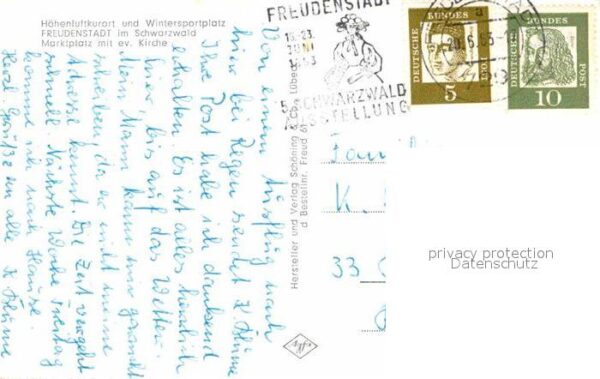 Höhenluftkurort und Wintersportplatz
FREUDENSTADT im Schwarzwald
Marktplatz mit ev. Kirche
Von einem Ausflug nach
hier bei Regen sendet
Ihre Post habe ich dankend
erhalten. Es ist alles herrlich
hier, bis auf das Wetter.
Mein Mann kann
schreiben, da er nicht meine
Adresse kennt. Die Zeit vergeht
schnell. Nächste Woche Freitag
komme ich nach Hause.
Herzl. Grüße an alle
Hersteller und Verlag Schöning & Co., Lübeck
Bestellnr. Freud 61
FREUDENSTADT
15.-23.
JUNI
SCHWARZWALD
AUSSTELLUNG
DEUTSCHE BUNDESPOST
5
DEUTSCHE BUNDESPOST
10
Fam
K.
33
privacy protection
Datenschutz